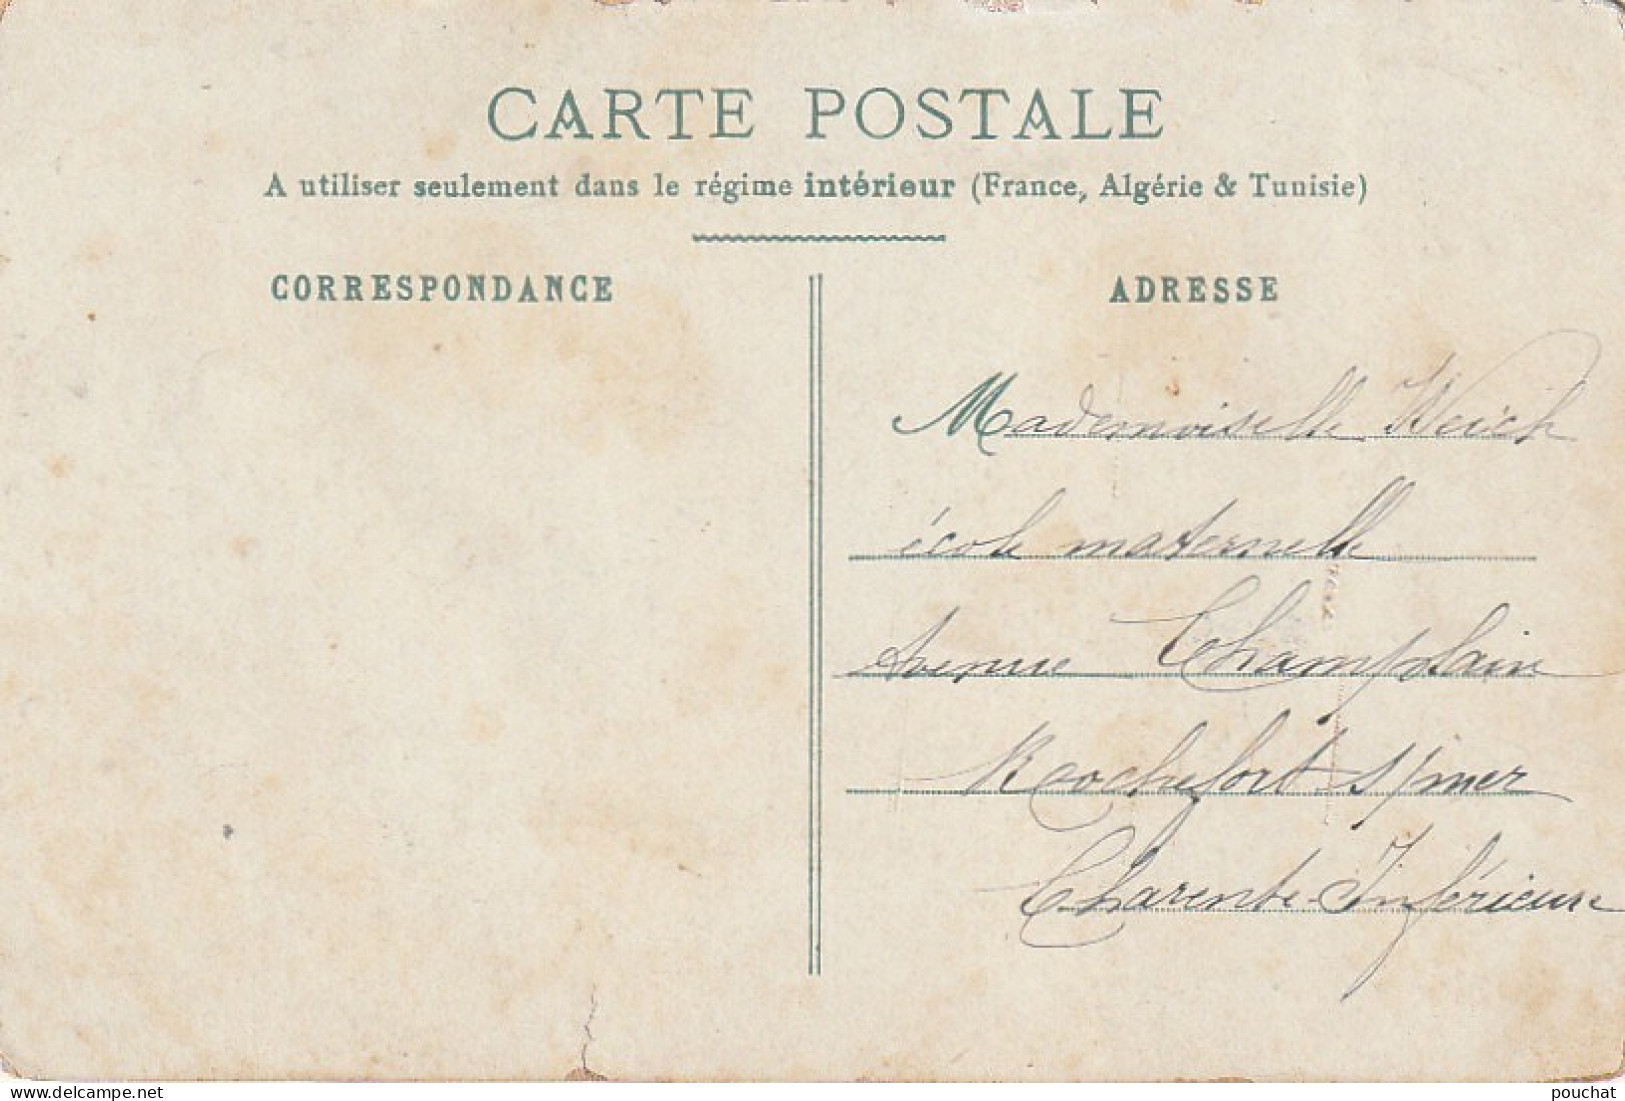 CARTE POSTALE
A utiliser seulement dans le régime intérieur (France, Algérie & Tunisie)
CORRESPONDANCE
ADRESSE
Mademoiselle
école maternelle
Avenue Champlain
Rochefort s/mer
Charente-Inférieure
delcampe.net
pouchat